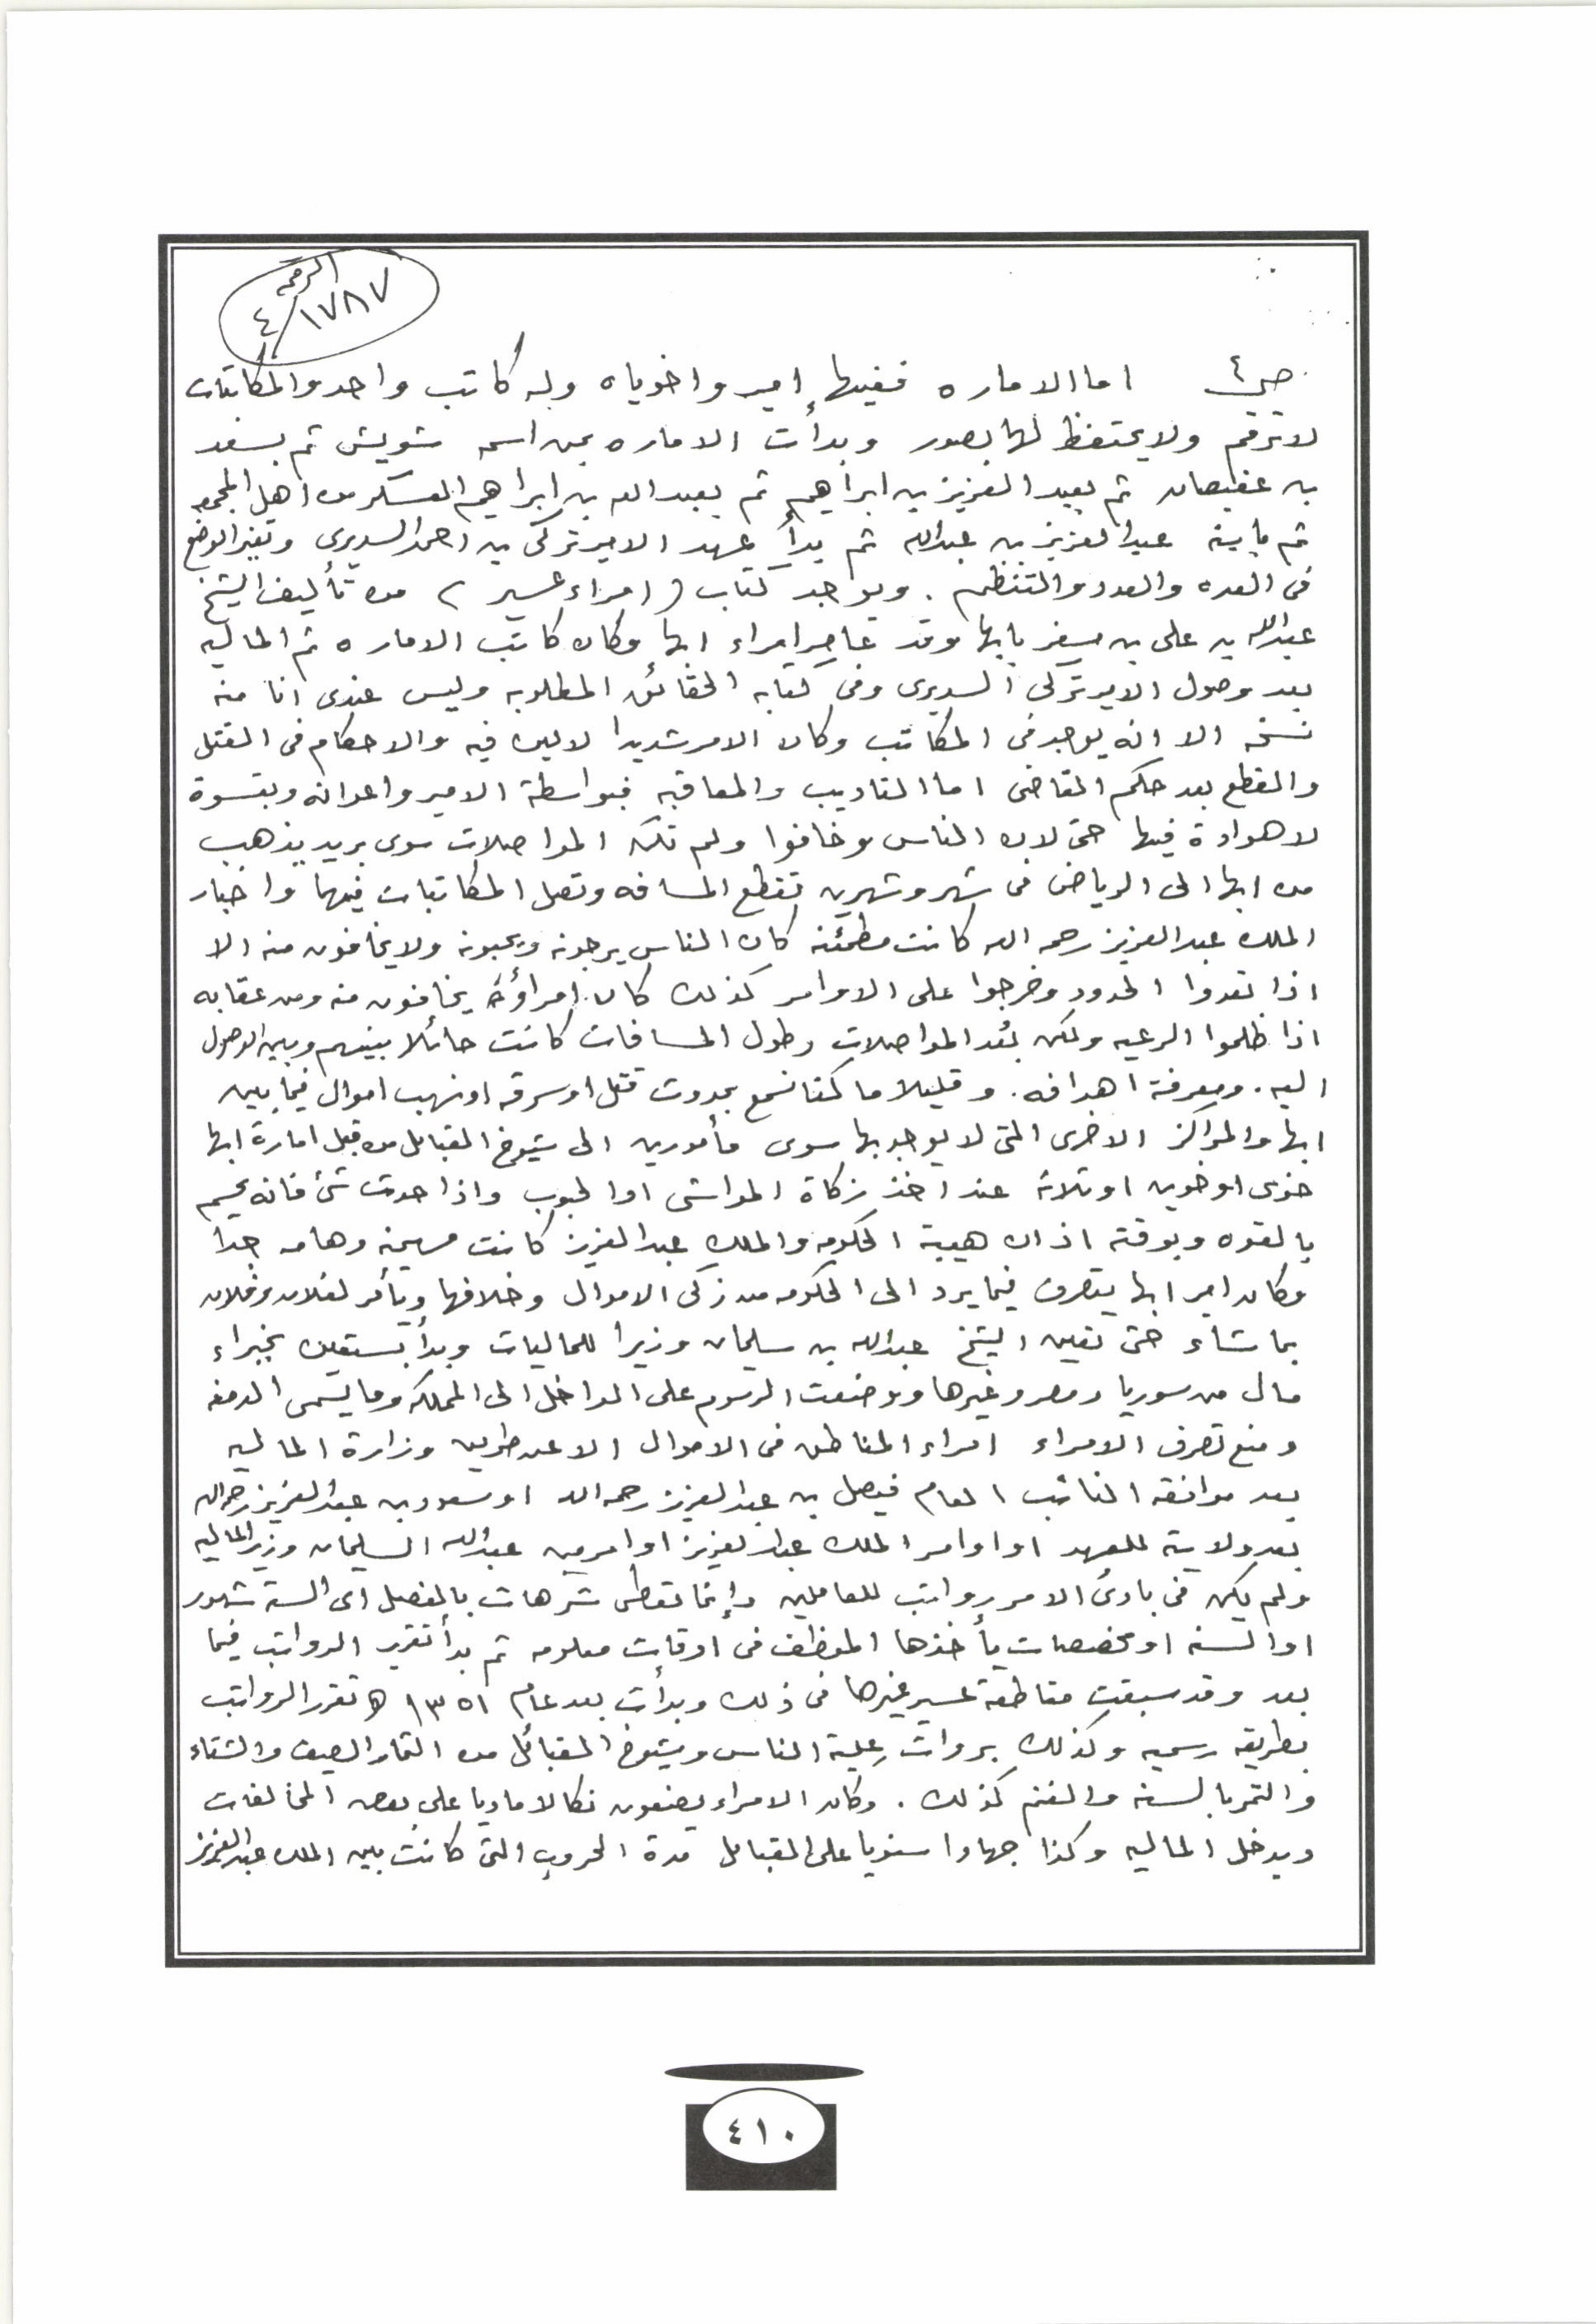 الرقم
١٧٨٧/٤
ص٤ اما الاماره ففيها إمير واخوياه وله كاتب واحد والمكاتبات
لاترقم ولايحتفظ لها بصور وبدأت الاماره بمن اسمه شويش ثم بسعد
بن عفيصان ثم بعبد العزيز بن ابراهيم ثم بعبد الله بن ابراهيم العسكر من اهل المجمعه
ثم بابنه عبدالعزيز بن عبدالله ثم بدأ عهد الامير تركي بن احمد السديرى وتغير الوضع
فى العده والعدد والتنظيم . ويوجد كتاب ( امراء عسير ) من تأليف الشيخ
عبدالله بن على بن مسفر بابها وقد عاصر امراء ابها وكان كاتب الاماره ثم الماليه
بعد وصول الامير تركى السديرى وفى كتابه الحقائق المطلوبه وليس عندى انا منه
نسخه الا انه يوجد فى المكاتب وكان الامر شديدا لالين فيه والاحكام فى القتل
والقطع بعد حكم القاضى اما التاديب والمعاقبه فبواسطة الامير واعوانه وبقسوة
لاهوادة فيها حتى لان الناس وخافوا ولم تكن المواصلات سوى بريد يذهب
من ابها الى الرياض فى شهر وشهرين تقطع المسافه وتصل المكاتبات فيهما واخبار
الملك عبدالعزيز رحمه الله كانت مطمئنه كان الناس يرجونه ويحبونه ولايخافون منه الا
اذا تعدوا الحدود وخرجوا على الاوامر كذلك كان امراؤه يخافون منه ومن عقابه
اذا ظلموا الرعيه ولكن بُعد المواصلات وطول المسافات كانت حائلا بينهم وبين الوصول
اليه . ومعرفة اهدافه . وقليلا ما كنا نسمع بحدوث قتل او سرقه او نهب اموال فيما بين
ابها والمراكز الاخرى التى لايوجد بها سوى مأمورين الى شيوخ القبائل من قبل امارة ابها
خوى او خوين او ثلاثه عند اخذ زكاة المواشى او الحبوب واذا حدث شئ فانه يحسم
بالقوه وبوقته اذ ان هيبة الحكومه والملك عبدالعزيز كانت مهيمنه وهامه جدا
وكان امير ابها يتصرف فيما يرد الى الحكومه من زكى الاموال وخلافها ويأمر لفلان وفلان
بما شاء حتى تعين الشيخ عبدالله بن سليمان وزيرا للماليات وبدأ يستعين بخبراء
مال من سوريا ومصر وغيرها ووضعت الرسوم على الداخل الى المملكه وما يسمى الدمغه
ومنع تصرف الامراء امراء المناطق فى الاموال الا عن طريق وزارة الماليه
بعد موافقه النائب العام فيصل بن عبدالعزيز رحمه الله او سعود بن عبدالعزيز رحمه الله
بعد ولايته للعهد او اوامر الملك عبدالعزيز او امر من عبدالله السليمان وزير الماليه
ولم يكن فى بادئ الامر رواتب للعاملين وإنما تعطى شرهات بالفصل اى الستة شهور
او السنه او مخصصات يأخذها الموظف فى اوقات معلومه ثم بدأ تقرير الرواتب فيما
بعد وقد سبقت مقاطعة عسير غيرها فى ذلك وبدأت بعد عام ١٣٥١ هـ تقرر الرواتب
بطريقه رسميه وكذلك بروات عِلية الناس وشيوخ القبائل من الثمار الصيف والشتاء
والتمر بالسنه والغنم كذلك . وكان الامراء يضعون نكالا ماديا على بعض المخالفات
ويدخل الماليه وكذا جهادا سنويا على القبائل مدة الحروب التى كانت بين الملك عبدالعزيز
٤١٠